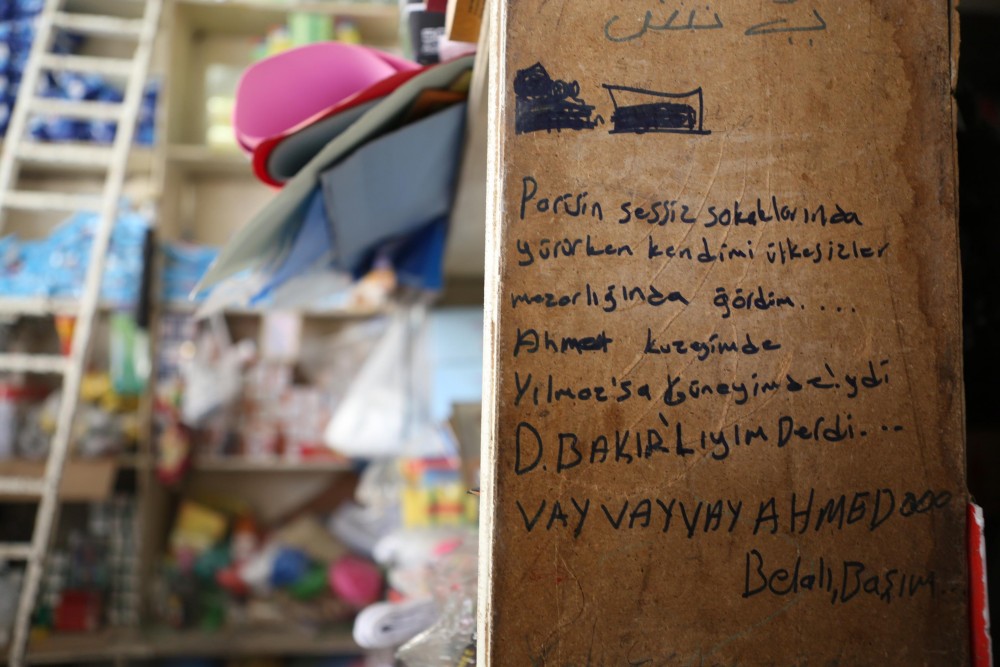 Parisin sessiz sokaklarında
yürürken kendimi ülkesizler
mezarlığında gördim....
Ahmet kuzeyimde
Yılmaz'sa Güneyimde'ydi
D.BAKIR'LIYIM Derdi...
VAY VAY VAY AHMEDooo
Belalı, Başım..